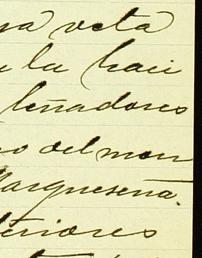 ya veta
la haci
leñadores
o del mon
Marqueseña.
teriores